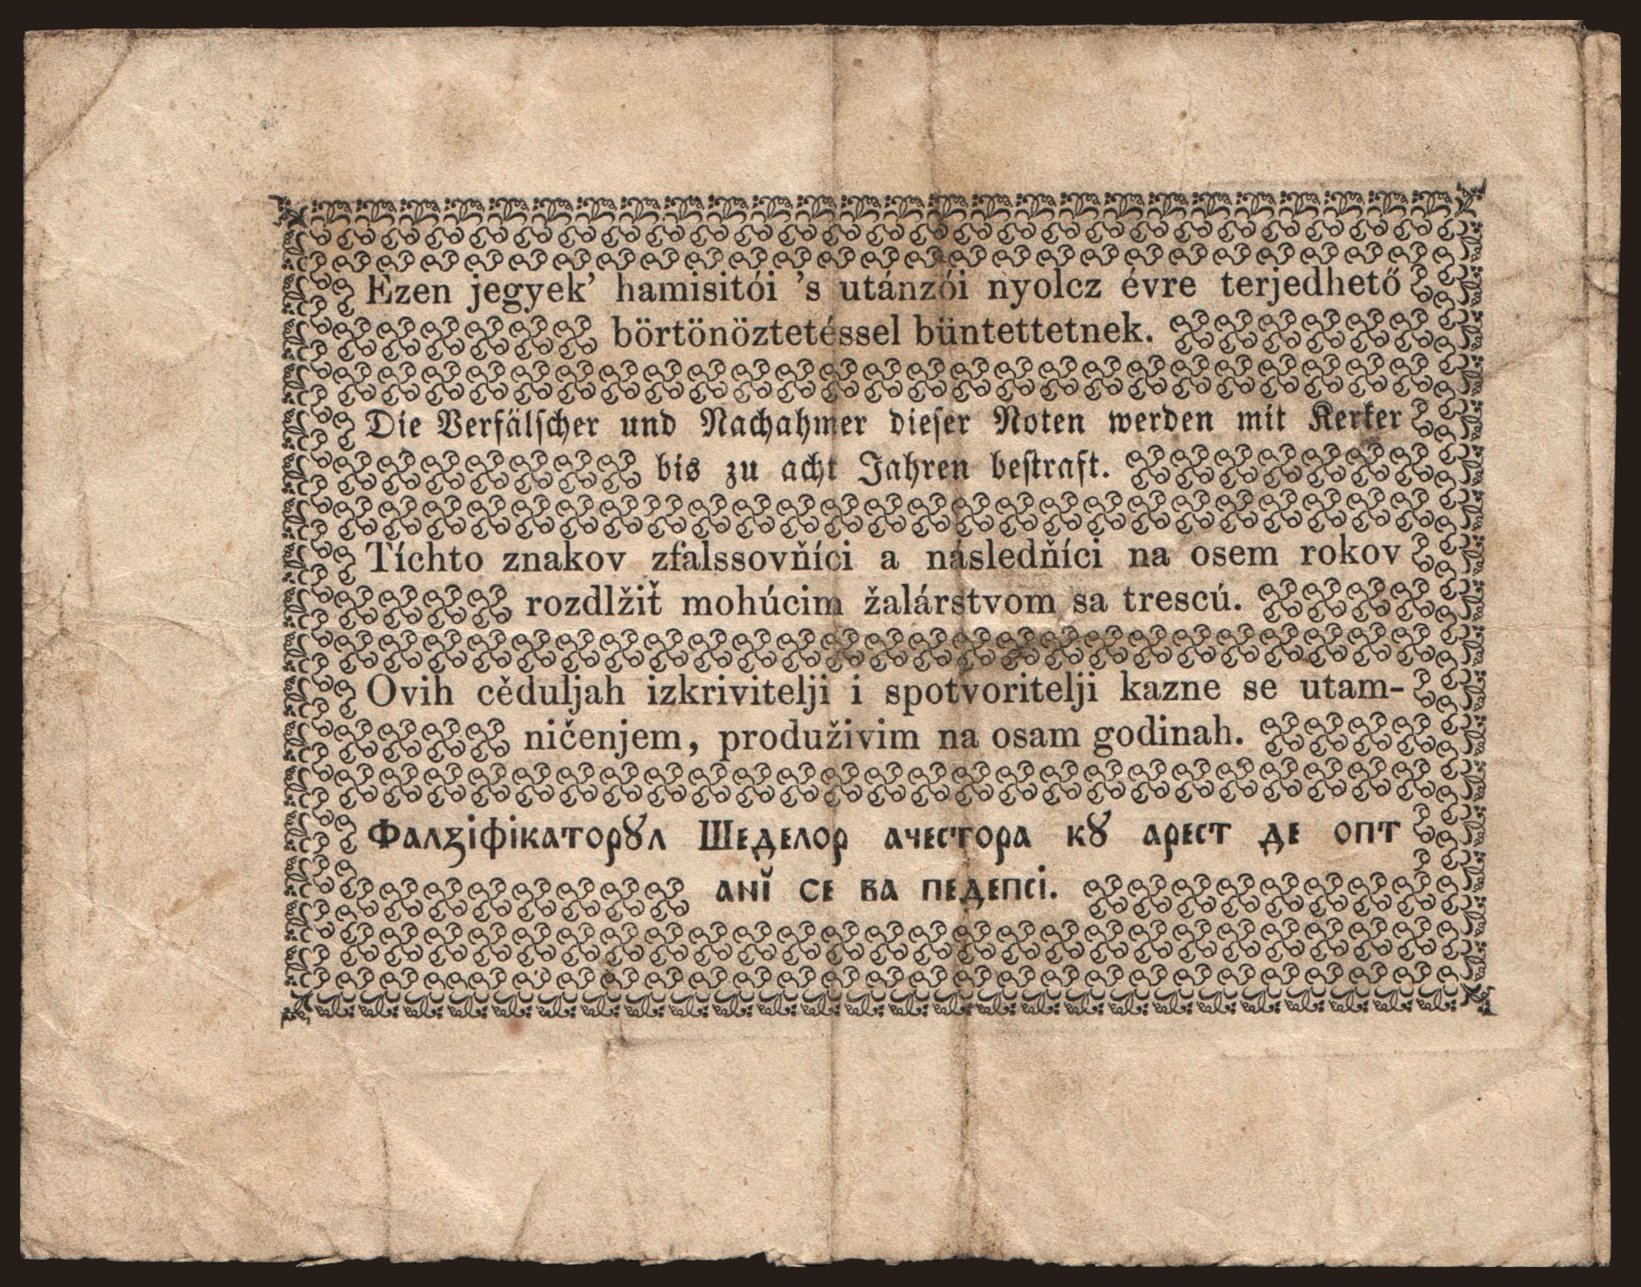 Ezen jegyek’ hamisitói ’s utánzói nyolcz évre terjedhető
börtönöztetéssel büntettetnek.
Die Verfälscher und Nachahmer dieser Noten werden mit Kerker
bis zu acht Jahren bestraft.
Tíchto znakov zfalssovňíci a následňíci na osem rokov
rozdlžiť mohúcim žalárstvom sa trescú.
Ovih cěduljah izkrivitelji i spotvoritelji kazne se utam-
ničenjem, produživim na osam godinah.
Фалꙁіфікаторꙋл Шеделор ачестора кꙋ арест де опт
анĭ се ва педепсі.